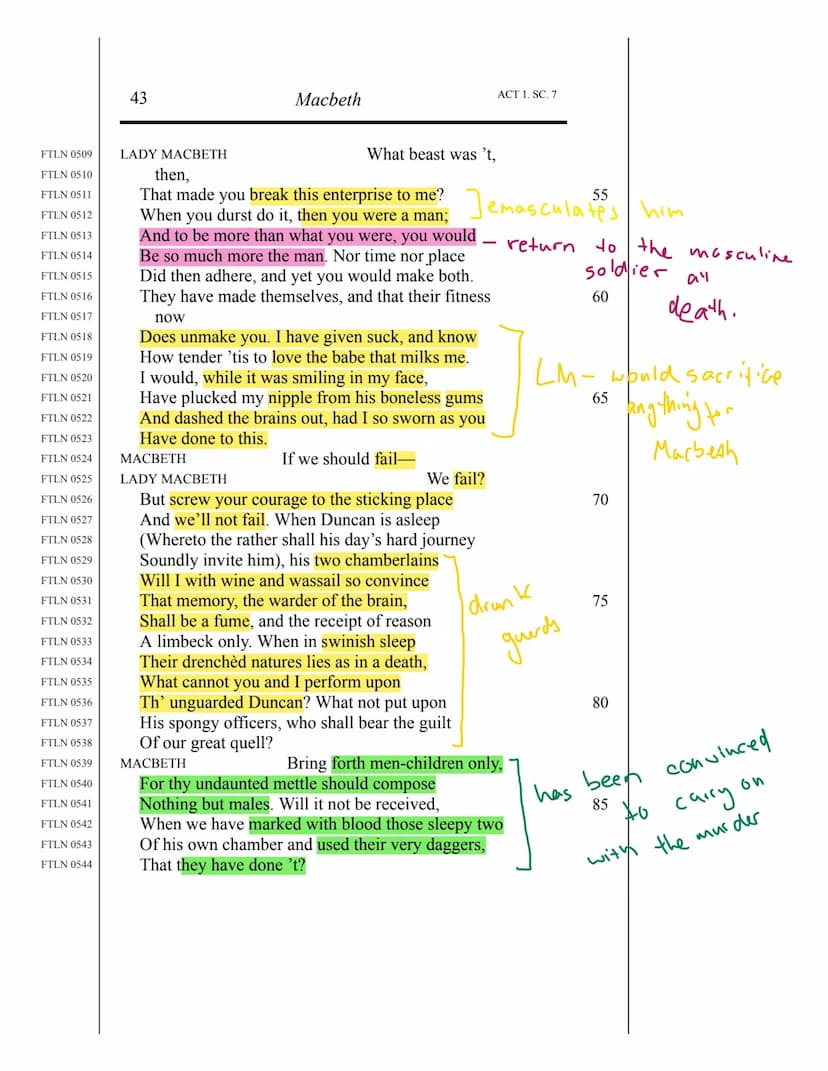 43 Macbeth ACT 1. SC. 7
FTLN 0509 LADY MACBETH What beast was ’t,
FTLN 0510 then,
FTLN 0511 That made you break this enterprise to me? 55
FTLN 0512 When you durst do it, then you were a man;
emasculates him
FTLN 0513 And to be more than what you were, you would
FTLN 0514 Be so much more the man. Nor time nor place
– return to the masculine
soldier at
death.
FTLN 0515 Did then adhere, and yet you would make both.
FTLN 0516 They have made themselves, and that their fitness 60
FTLN 0517 now
FTLN 0518 Does unmake you. I have given suck, and know
FTLN 0519 How tender ’tis to love the babe that milks me.
FTLN 0520 I would, while it was smiling in my face,
FTLN 0521 Have plucked my nipple from his boneless gums 65
FTLN 0522 And dashed the brains out, had I so sworn as you
FTLN 0523 Have done to this.
LM – would sacrifice
anything for
Macbeth
FTLN 0524 MACBETH If we should fail—
FTLN 0525 LADY MACBETH We fail?
FTLN 0526 But screw your courage to the sticking place 70
FTLN 0527 And we’ll not fail. When Duncan is asleep
FTLN 0528 (Whereto the rather shall his day’s hard journey
FTLN 0529 Soundly invite him), his two chamberlains
FTLN 0530 Will I with wine and wassail so convince
FTLN 0531 That memory, the warder of the brain, 75
FTLN 0532 Shall be a fume, and the receipt of reason
FTLN 0533 A limbeck only. When in swinish sleep
FTLN 0534 Their drenchèd natures lies as in a death,
FTLN 0535 What cannot you and I perform upon
FTLN 0536 Th’ unguarded Duncan? What not put upon 80
FTLN 0537 His spongy officers, who shall bear the guilt
FTLN 0538 Of our great quell?
drunk
guards
FTLN 0539 MACBETH Bring forth men-children only,
FTLN 0540 For thy undaunted mettle should compose
FTLN 0541 Nothing but males. Will it not be received, 85
FTLN 0542 When we have marked with blood those sleepy two
FTLN 0543 Of his own chamber and used their very daggers,
FTLN 0544 That they have done ’t?
has been convinced
to carry on
with the murder